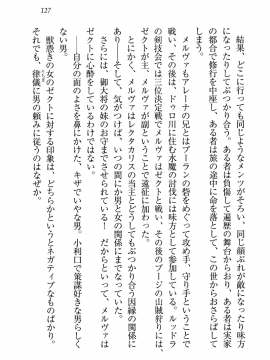 127
結果、どこに行っても同じようなメンツが揃い、同じ顔ぶれが敵だったり味方
になったりしてぶつかり合う。ある者は負傷して遍歴の舞台から去り、ある者は実家
の都合で修行を中座し、ある者は旅の途中に命を落としてこの世からおさらばする。
メルヴァもアレーナの兄とはブーランの砦をめぐって攻め手、守り手ということで
戦い、その後は、ドゥロ川に住む水魔の討伐には味方として参加している。ルッドラ
の剣技会では三位決定戦でメルヴァはゼクトと戦い、その後のブージの山賊狩りには
ゼクトが主将、メルヴァが副ということで遠征に加わった。
とにかく、メルヴァはレクタカラスの当主とどうでもぶつかり合う因縁の関係に
あった。そして、気がつけば、いつの間にか男と女の関係にまでなっていた。
さらには、御大将の妹のお守までさせている! だからといって、メルヴァは
ゼクトに心酔をしているわけではない。
――自分の面のよさを鼻にかけた、キザでいやな男。小利口で策謀好きな男らしく
ない男。
獣憑きの女のゼクトに対する印象は、どちらかというとネガティブなものばかり。
それでも、律儀に男の頼みに従うのはなぜか。